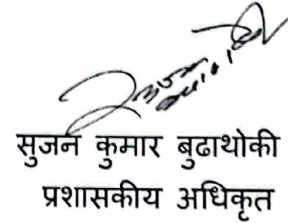 सुजन कुमार बुढाथोकी
प्रशासकीय अधिकृत